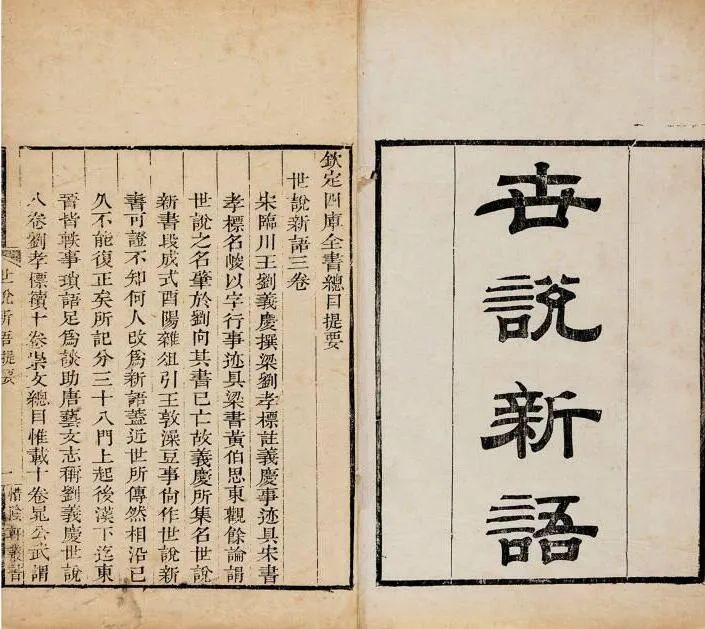 世說新語
欽定四庫全書總目提要
世說新語三卷
宋臨川王劉義慶撰梁劉孝標註義慶事迹具宋書
孝標名峻以字行事迹具梁書黃伯思東觀餘論謂
世說之名肇於劉向其書已亡故義慶所集名世說
新書段成式酉陽雜俎引王敦澡豆事尙作世說新
書可證不知何人改爲新語葢近世所傳然相沿已
久不能復正矣所記分三十八門上起後漢下迄東
晉皆軼事瑣語足爲談助唐藝文志稱劉義慶世說
八卷劉孝標續十卷崇文總目惟載十卷晁公武謂
世說新語提要 一 惜陰軒叢書